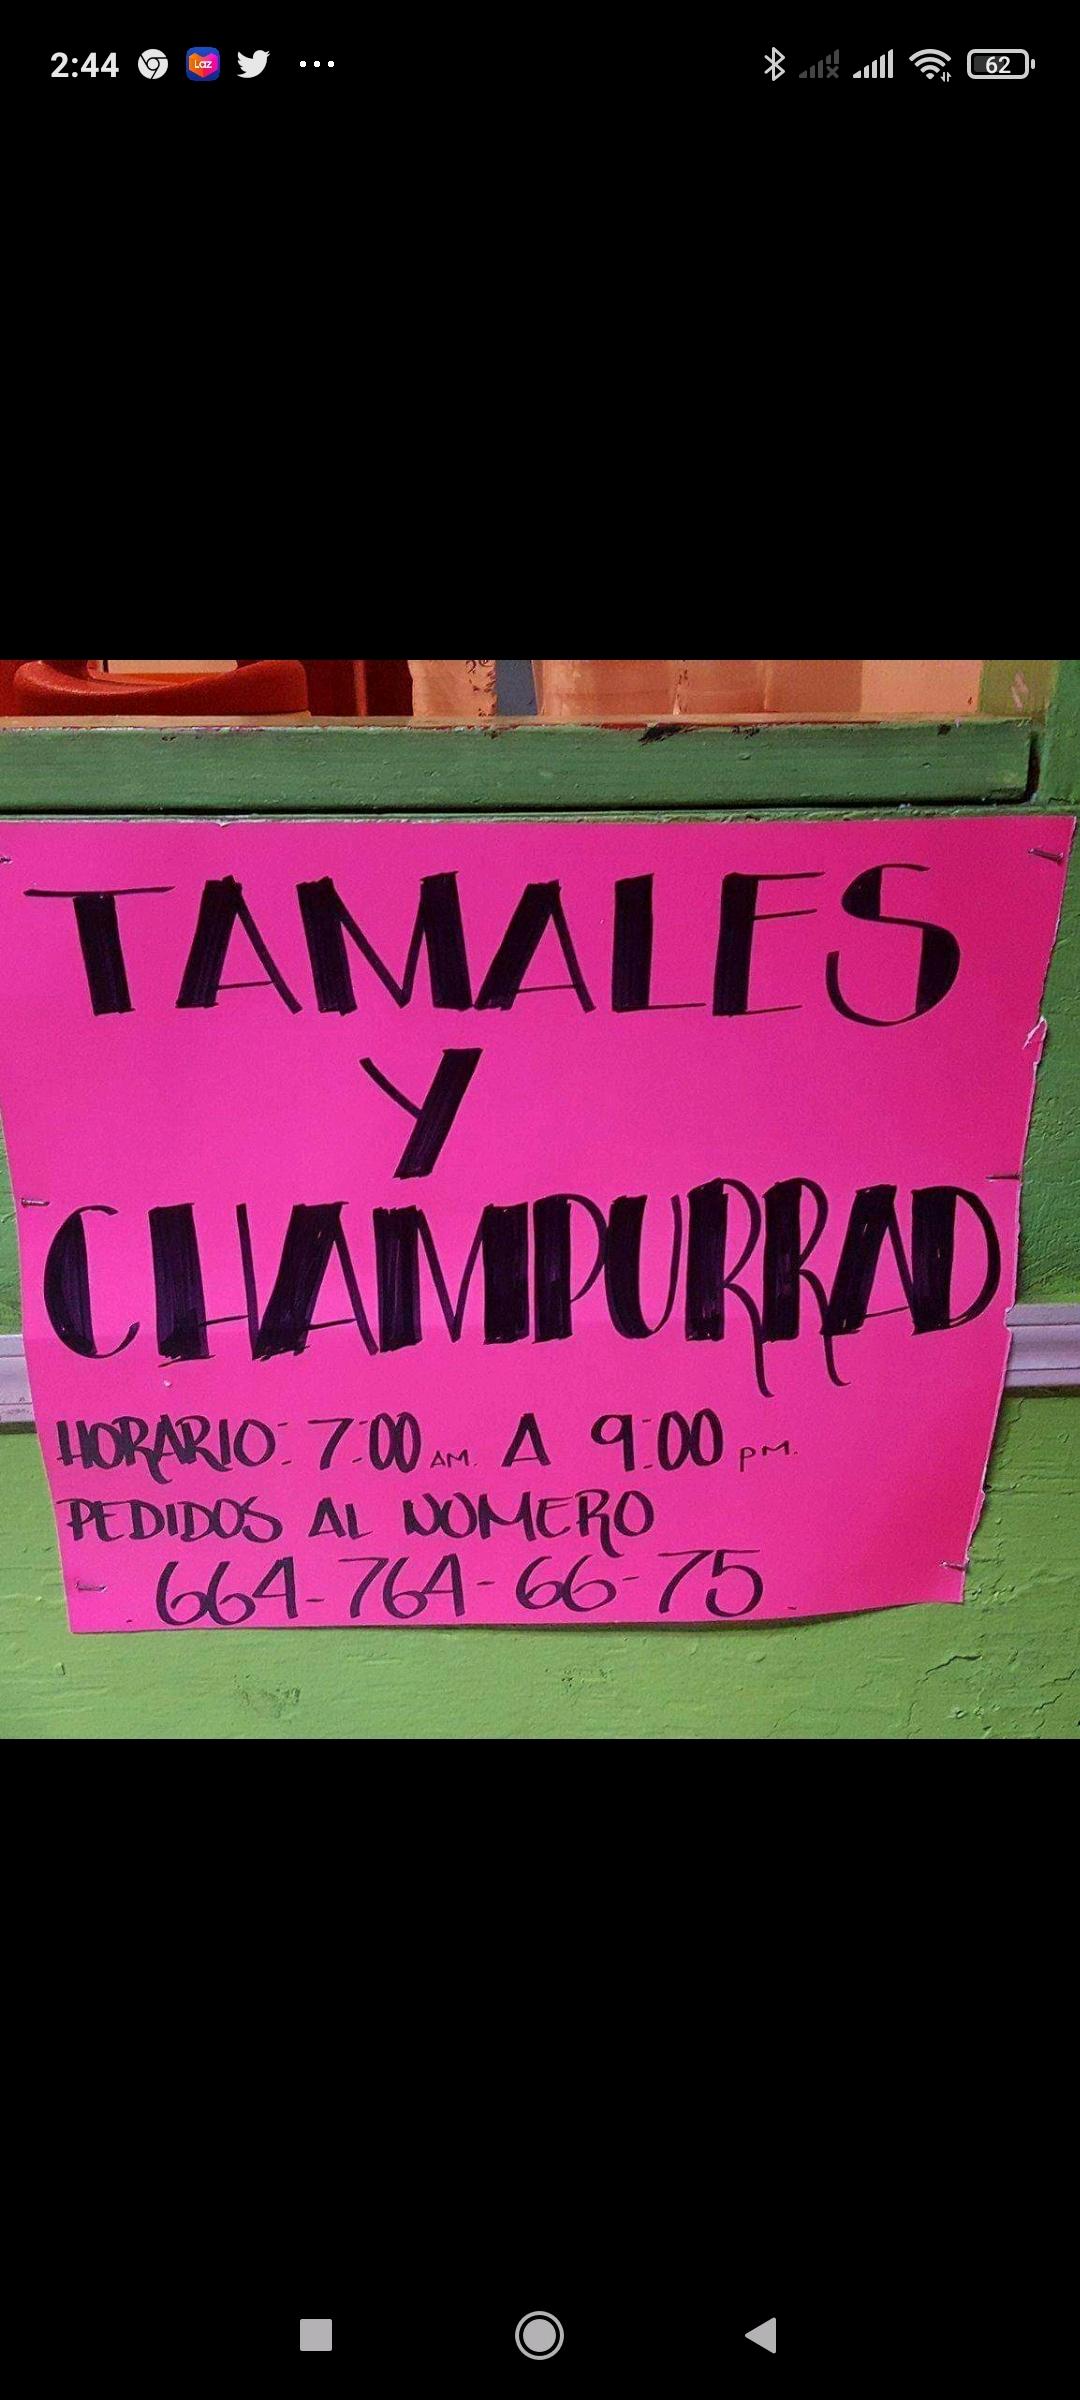 2:44
Laz
62
TAMALES
Y
CHAMPURRAD
HORARIO: 7:00 AM. A 9:00 PM.
PEDIDOS AL NUMERO
664-764-66-75